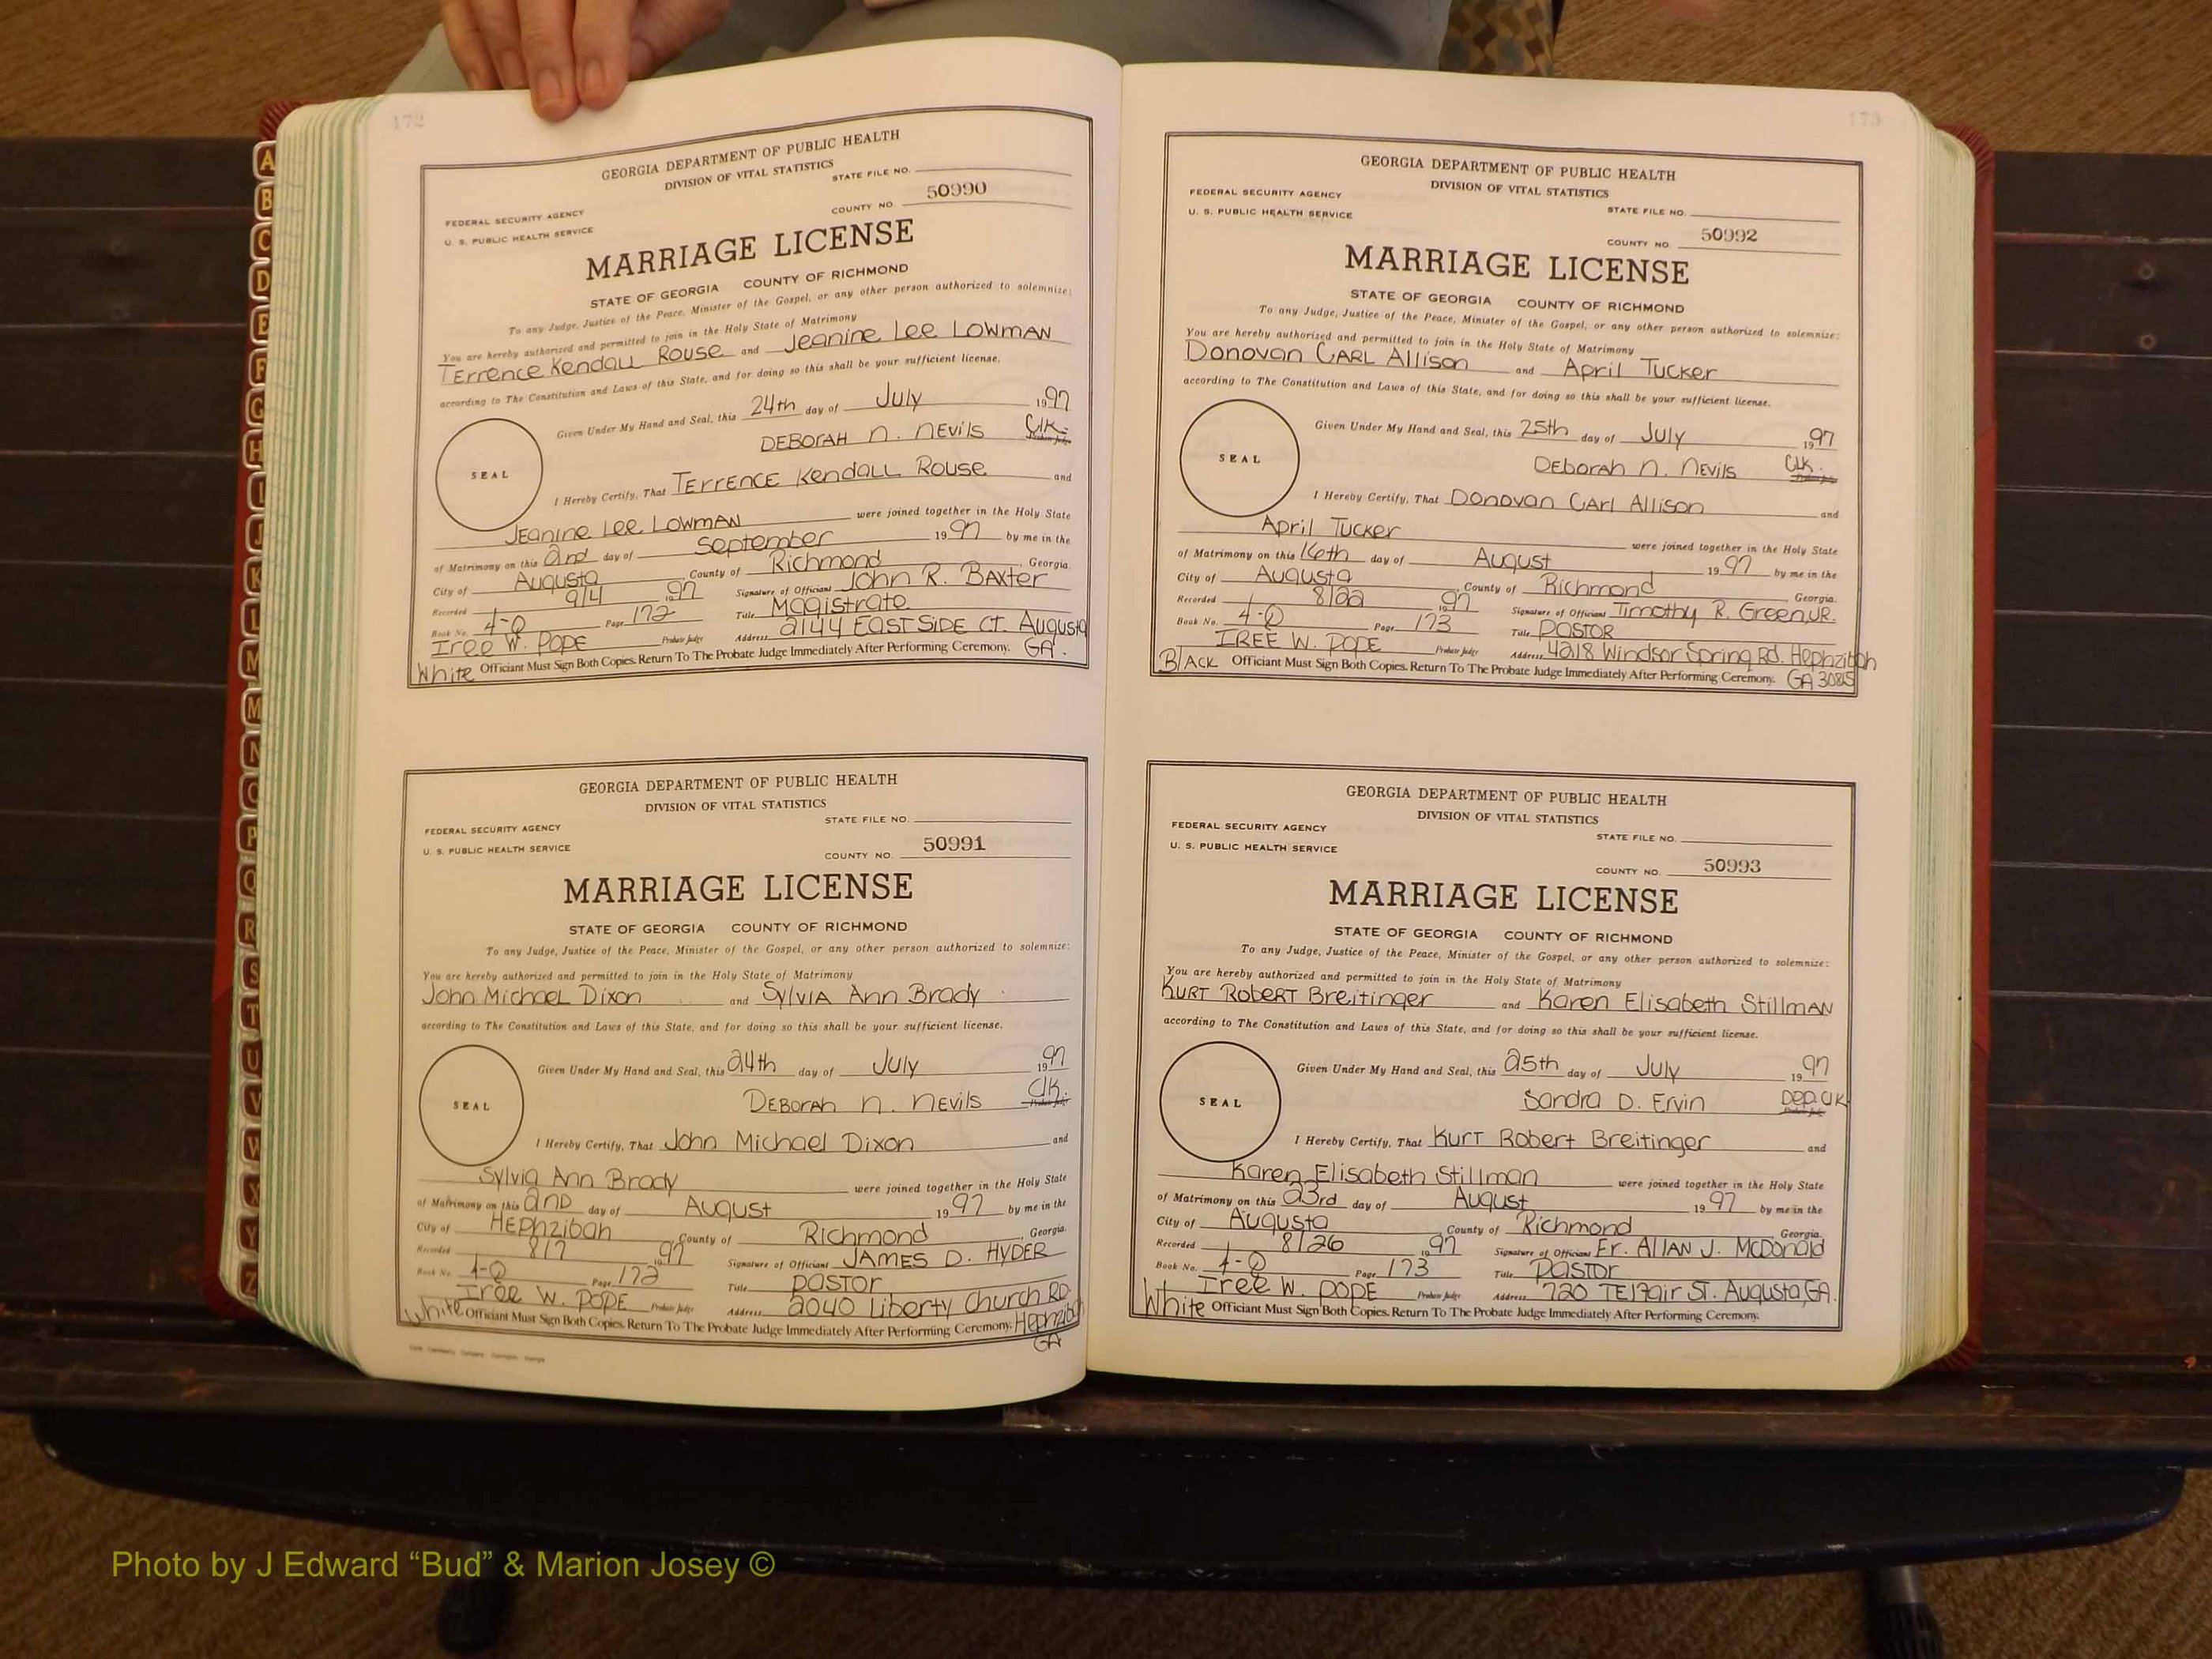 172
GEORGIA DEPARTMENT OF PUBLIC HEALTH
DIVISION OF VITAL STATISTICS
STATE FILE NO.
FEDERAL SECURITY AGENCY
U. S. PUBLIC HEALTH SERVICE
COUNTY NO. 50990
MARRIAGE LICENSE
STATE OF GEORGIA COUNTY OF RICHMOND
To any Judge, Justice of the Peace, Minister of the Gospel, or any other person authorized to solemnize:
You are hereby authorized and permitted to join in the Holy State of Matrimony
Terrence Kendall Rouse and Jeanine Lee Lowman
according to The Constitution and Laws of this State, and for doing so this shall be your sufficient license.
Given Under My Hand and Seal, this 24th day of July 1997
DEBORAH N. NEVILS Clk.
SEAL
I Hereby Certify, That Terrence Kendall Rouse and
Jeanine Lee Lowman were joined together in the Holy State
of Matrimony on this 2nd day of September 1997 by me in the
City of Augusta County of Richmond, Georgia.
Recorded 9/4 1997 Signature of Officiant John R. Baxter
Book No. 4-Q Page 172 Title Magistrate
Iree W. Pope Probate Judge Address 2144 East Side Ct. Augusta
White Officiant Must Sign Both Copies. Return To The Probate Judge Immediately After Performing Ceremony. GA.
GEORGIA DEPARTMENT OF PUBLIC HEALTH
DIVISION OF VITAL STATISTICS
STATE FILE NO.
FEDERAL SECURITY AGENCY
U. S. PUBLIC HEALTH SERVICE
COUNTY NO. 50991
MARRIAGE LICENSE
STATE OF GEORGIA COUNTY OF RICHMOND
To any Judge, Justice of the Peace, Minister of the Gospel, or any other person authorized to solemnize:
You are hereby authorized and permitted to join in the Holy State of Matrimony
John Michael Dixon and Sylvia Ann Brady
according to The Constitution and Laws of this State, and for doing so this shall be your sufficient license.
Given Under My Hand and Seal, this 24th day of July 1997
Deborah N. Nevils Clk.
SEAL
I Hereby Certify, That John Michael Dixon and
Sylvia Ann Brady were joined together in the Holy State
of Matrimony on this 2nd day of August 1997 by me in the
City of Hephzibah County of Richmond, Georgia.
Recorded 8/7 1997 Signature of Officiant JAMES D. HYDER
Book No. 4-Q Page 172 Title Pastor
Iree W. Pope Probate Judge Address 2040 Liberty Church Rd
White Officiant Must Sign Both Copies. Return To The Probate Judge Immediately After Performing Ceremony. Hephzibah
GA
173
GEORGIA DEPARTMENT OF PUBLIC HEALTH
DIVISION OF VITAL STATISTICS
FEDERAL SECURITY AGENCY
U. S. PUBLIC HEALTH SERVICE
STATE FILE NO.
COUNTY NO. 50992
MARRIAGE LICENSE
STATE OF GEORGIA COUNTY OF RICHMOND
To any Judge, Justice of the Peace, Minister of the Gospel, or any other person authorized to solemnize:
You are hereby authorized and permitted to join in the Holy State of Matrimony
Donovan Carl Allison and April Tucker
according to The Constitution and Laws of this State, and for doing so this shall be your sufficient license.
Given Under My Hand and Seal, this 25th day of July 1997
Deborah N. Nevils Clk.
SEAL
I Hereby Certify, That Donovan Carl Allison and
April Tucker were joined together in the Holy State
of Matrimony on this 16th day of August 1997 by me in the
City of Augusta, County of Richmond, Georgia.
Recorded 8/22 1997 Signature of Officiant Timothy R. Green, JR.
Book No. 4-Q Page 173 Title Pastor
IREE W. POPE Probate Judge Address 4218 Windsor Spring Rd. Hephzibah
Black Officiant Must Sign Both Copies. Return To The Probate Judge Immediately After Performing Ceremony. GA 30815
GEORGIA DEPARTMENT OF PUBLIC HEALTH
DIVISION OF VITAL STATISTICS
FEDERAL SECURITY AGENCY
U. S. PUBLIC HEALTH SERVICE
STATE FILE NO.
COUNTY NO. 50993
MARRIAGE LICENSE
STATE OF GEORGIA COUNTY OF RICHMOND
To any Judge, Justice of the Peace, Minister of the Gospel, or any other person authorized to solemnize:
You are hereby authorized and permitted to join in the Holy State of Matrimony
Kurt Robert Breitinger and Karen Elisabeth Stillman
according to The Constitution and Laws of this State, and for doing so this shall be your sufficient license.
Given Under My Hand and Seal, this 25th day of July 1997
Sandra D. Ervin Dep. Clk
SEAL
I Hereby Certify, That Kurt Robert Breitinger and
Karen Elisabeth Stillman were joined together in the Holy State
of Matrimony on this 23rd day of August 1997 by me in the
City of Augusta County of Richmond, Georgia.
Recorded 8/26 1997 Signature of Officiant Fr. Allan J. McDonald
Book No. 4-Q Page 173 Title Pastor
Iree W. Pope Probate Judge Address 720 Telfair St. Augusta, GA.
White Officiant Must Sign Both Copies. Return To The Probate Judge Immediately After Performing Ceremony.
A
B
C
D
E
F
G
H
I
J
K
L
M
M
N
O
P
Q
R
S
T
U
V
W
X
Y
Z
Photo by J Edward “Bud” & Marion Josey ©